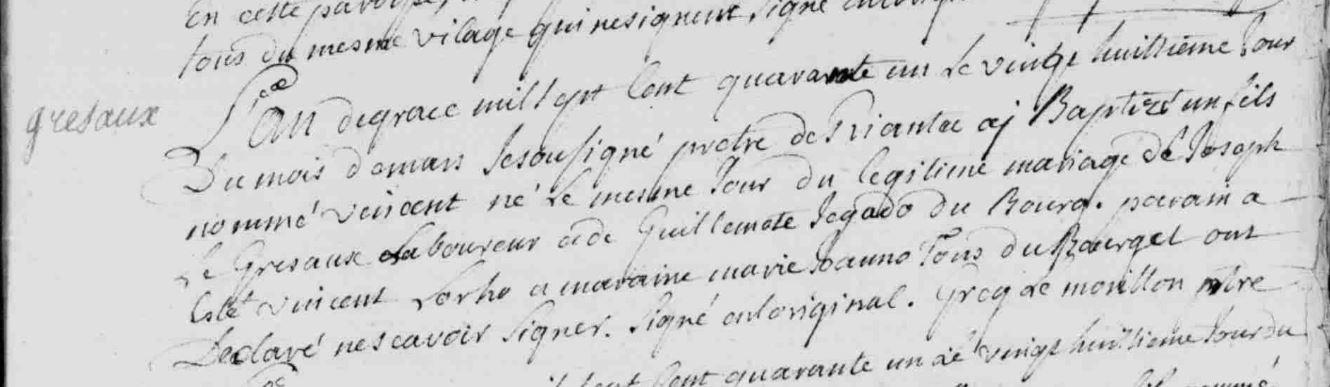 En cette paroisse,
tous du mesme vilage qui ne signent signé
gresaux
L'an de grace mil sept Cent quarante un Le vingt huittième Jour
Du mois de mars Je sousigné pretre de aj Baptizé un fils
nommé vincent né Le mesme Jour du legitime mariage de Joseph
Le Gresaux Laboureur et de Guillemete Jegado du Bourg. parain a
Esté vincent Lorho et maraine marie Tous du Bourg et ont
Declaré ne scavoir signer. signé en l'original. Greg Le monillon ptre
sept Cent quarante un Le vingt huittieme Jour du
nommé